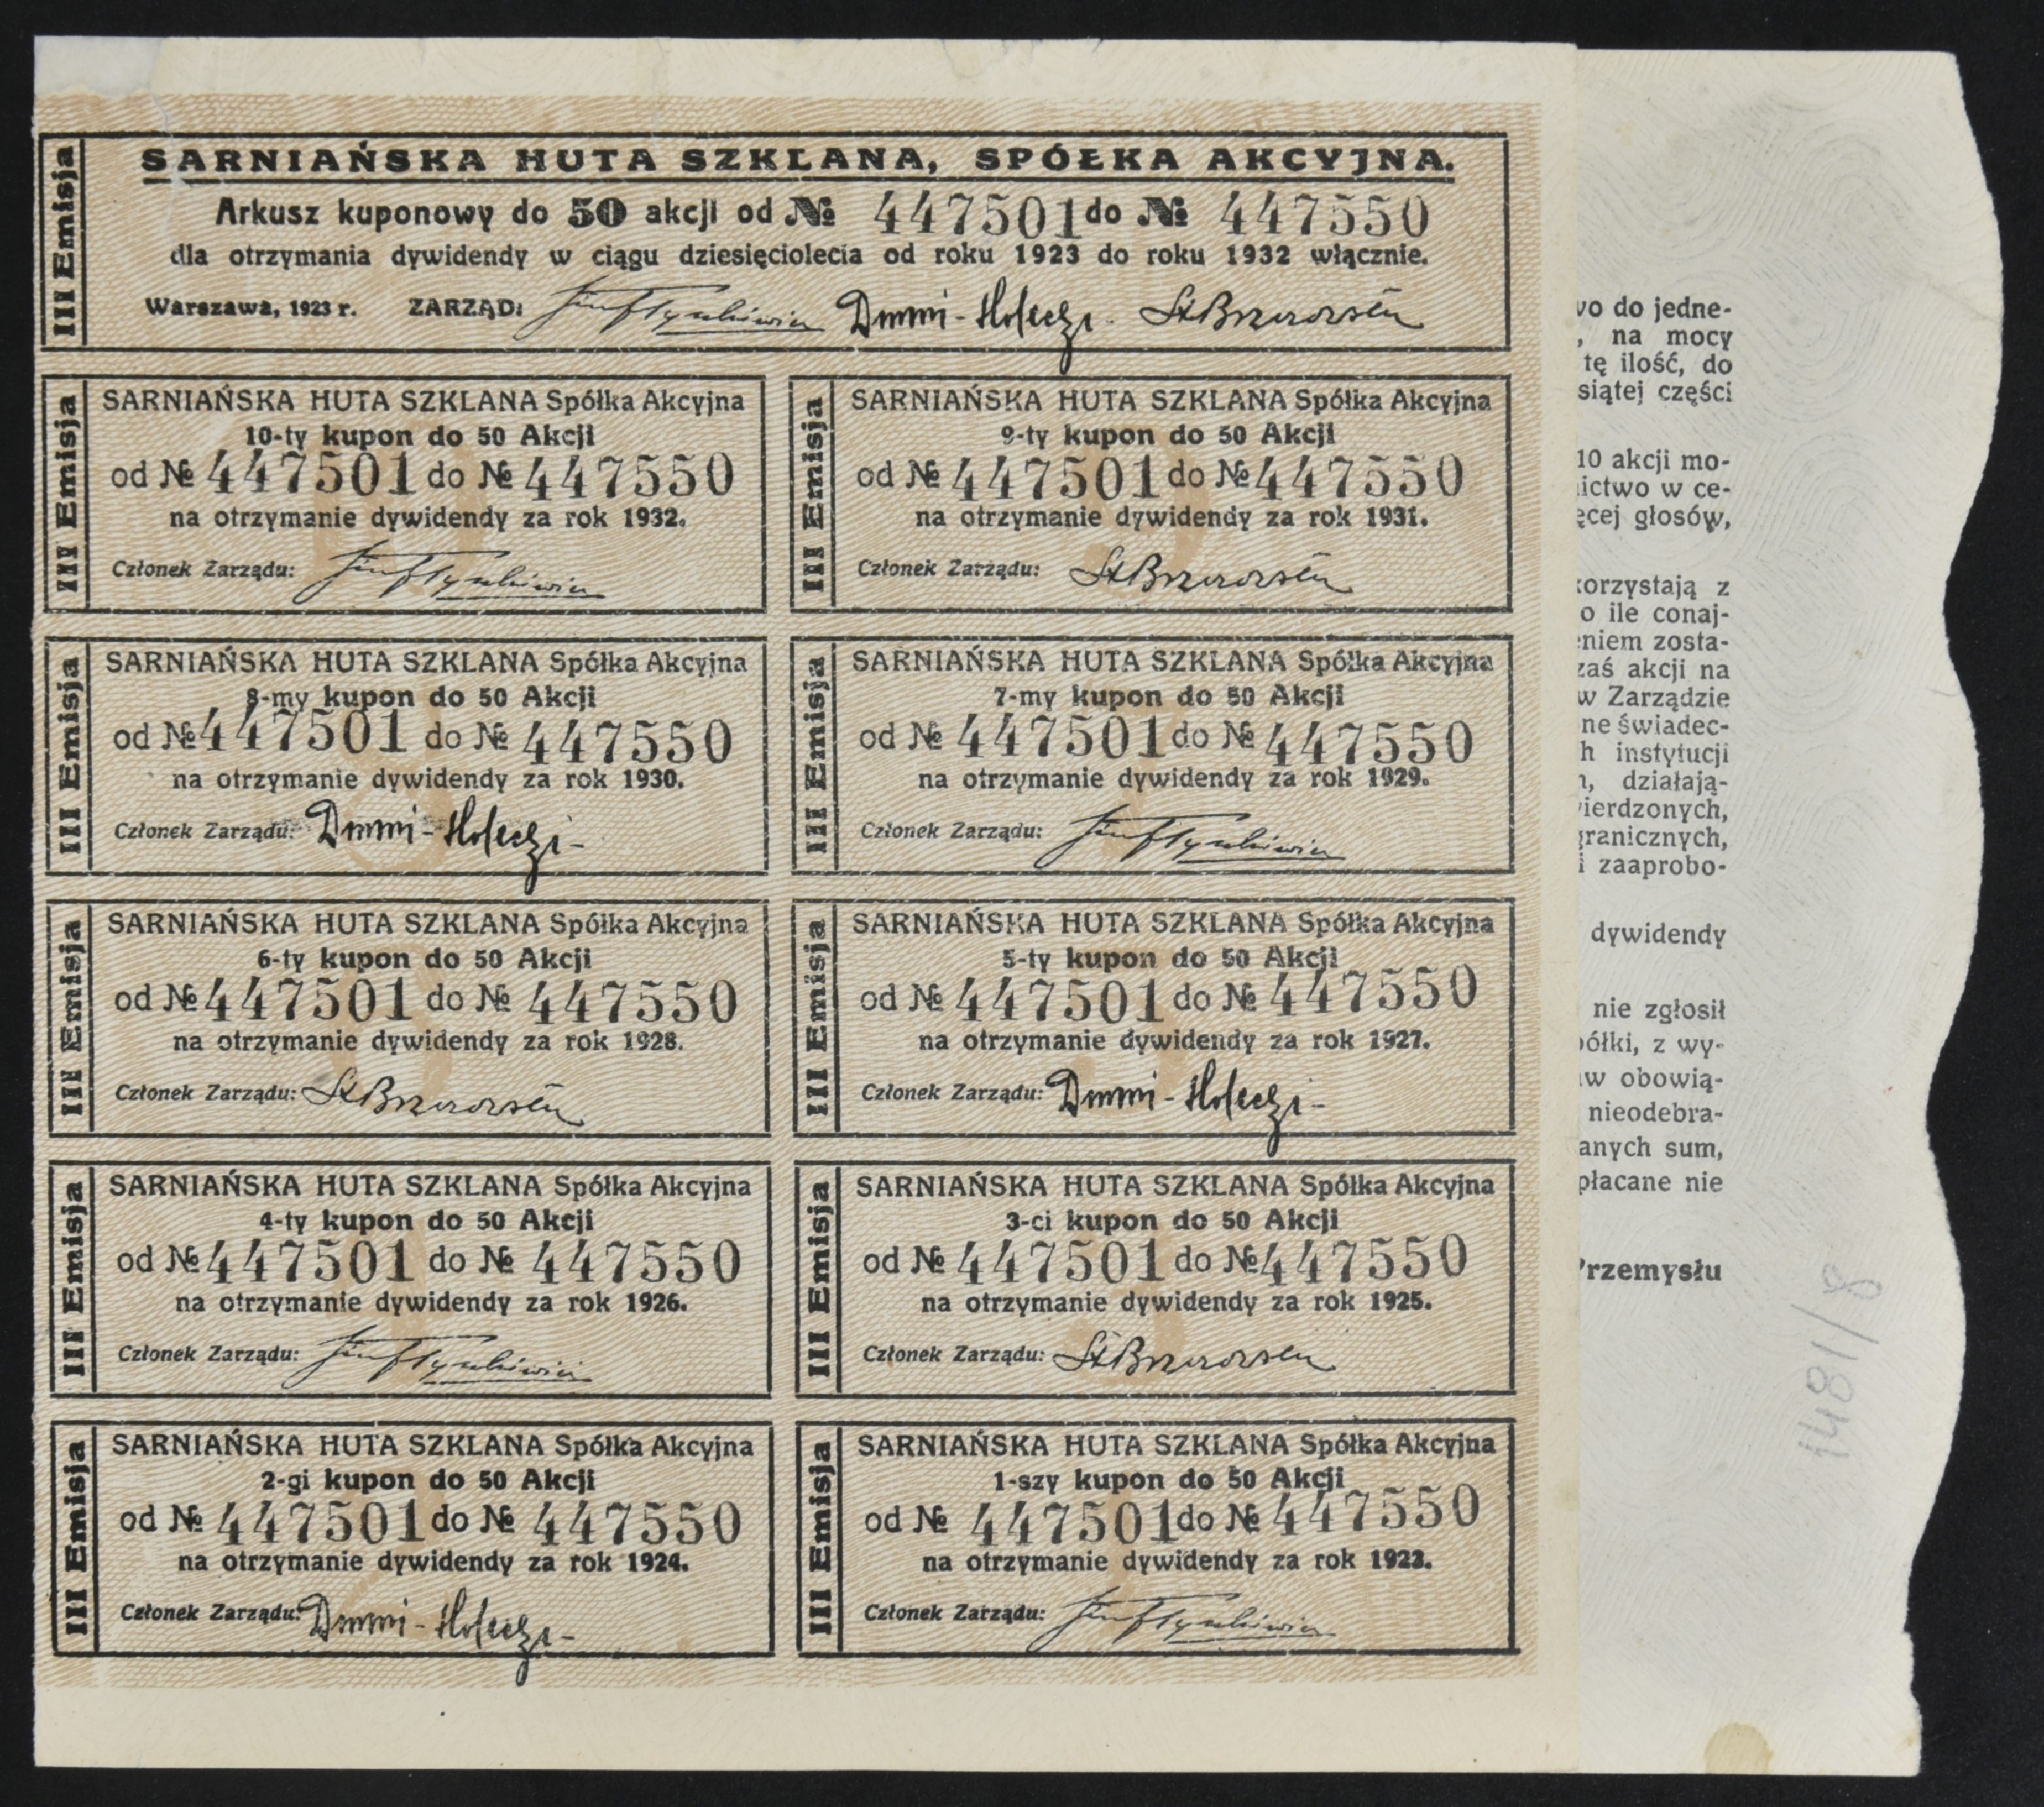 III Emisja
SARNIAŃSKA HUTA SZKLANA, SPÓŁKA AKCYJNA.
Arkusz kuponowy do 50 akcji od № 447501 do № 447550
dla otrzymania dywidendy w ciągu dziesięciolecia od roku 1923 do roku 1932 włącznie.
Warszawa, 1923 r. ZARZĄD:
III Emisja
SARNIAŃSKA HUTA SZKLANA Spółka Akcyjna
10-ty kupon do 50 Akcji
od № 447501 do № 447550
na otrzymanie dywidendy za rok 1932.
Członek Zarządu:
III Emisja
SARNIAŃSKA HUTA SZKLANA Spółka Akcyjna
9-ty kupon do 50 Akcji
od № 447501 do № 447550
na otrzymanie dywidendy za rok 1931.
Członek Zarządu:
III Emisja
SARNIAŃSKA HUTA SZKLANA Spółka Akcyjna
8-my kupon do 50 Akcji
od № 447501 do № 447550
na otrzymanie dywidendy za rok 1930.
Członek Zarządu:
III Emisja
SARNIAŃSKA HUTA SZKLANA Spółka Akcyjna
7-my kupon do 50 Akcji
od № 447501 do № 447550
na otrzymanie dywidendy za rok 1929.
Członek Zarządu:
III Emisja
SARNIAŃSKA HUTA SZKLANA Spółka Akcyjna
6-ty kupon do 50 Akcji
od № 447501 do № 447550
na otrzymanie dywidendy za rok 1928.
Członek Zarządu:
III Emisja
SARNIAŃSKA HUTA SZKLANA Spółka Akcyjna
5-ty kupon do 50 Akcji
od № 447501 do № 447550
na otrzymanie dywidendy za rok 1927.
Członek Zarządu:
III Emisja
SARNIAŃSKA HUTA SZKLANA Spółka Akcyjna
4-ty kupon do 50 Akcji
od № 447501 do № 447550
na otrzymanie dywidendy za rok 1926.
Członek Zarządu:
III Emisja
SARNIAŃSKA HUTA SZKLANA Spółka Akcyjna
3-ci kupon do 50 Akcji
od № 447501 do № 447550
na otrzymanie dywidendy za rok 1925.
Członek Zarządu:
III Emisja
SARNIAŃSKA HUTA SZKLANA Spółka Akcyjna
2-gi kupon do 50 Akcji
od № 447501 do № 447550
na otrzymanie dywidendy za rok 1924.
Członek Zarządu:
III Emisja
SARNIAŃSKA HUTA SZKLANA Spółka Akcyjna
1-szy kupon do 50 Akcji
od № 447501 do № 447550
na otrzymanie dywidendy za rok 1923.
Członek Zarządu:
do jedne-
, na mocy
tę ilość, do
siątej części
10 akcji mo-
ictwo w ce-
ęcej głosów,
korzystają z
o ile conaj-
niem zosta-
zaś akcji na
w Zarządzie
ne świadec-
h instytucji
, działają-
ierdzonych,
granicznych,
i zaaprobo-
dywidendy
nie zgłosił
ółki, z wy-
w obowią-
nieodebra-
anych sum,
płacane nie
Przemysłu
1481/8